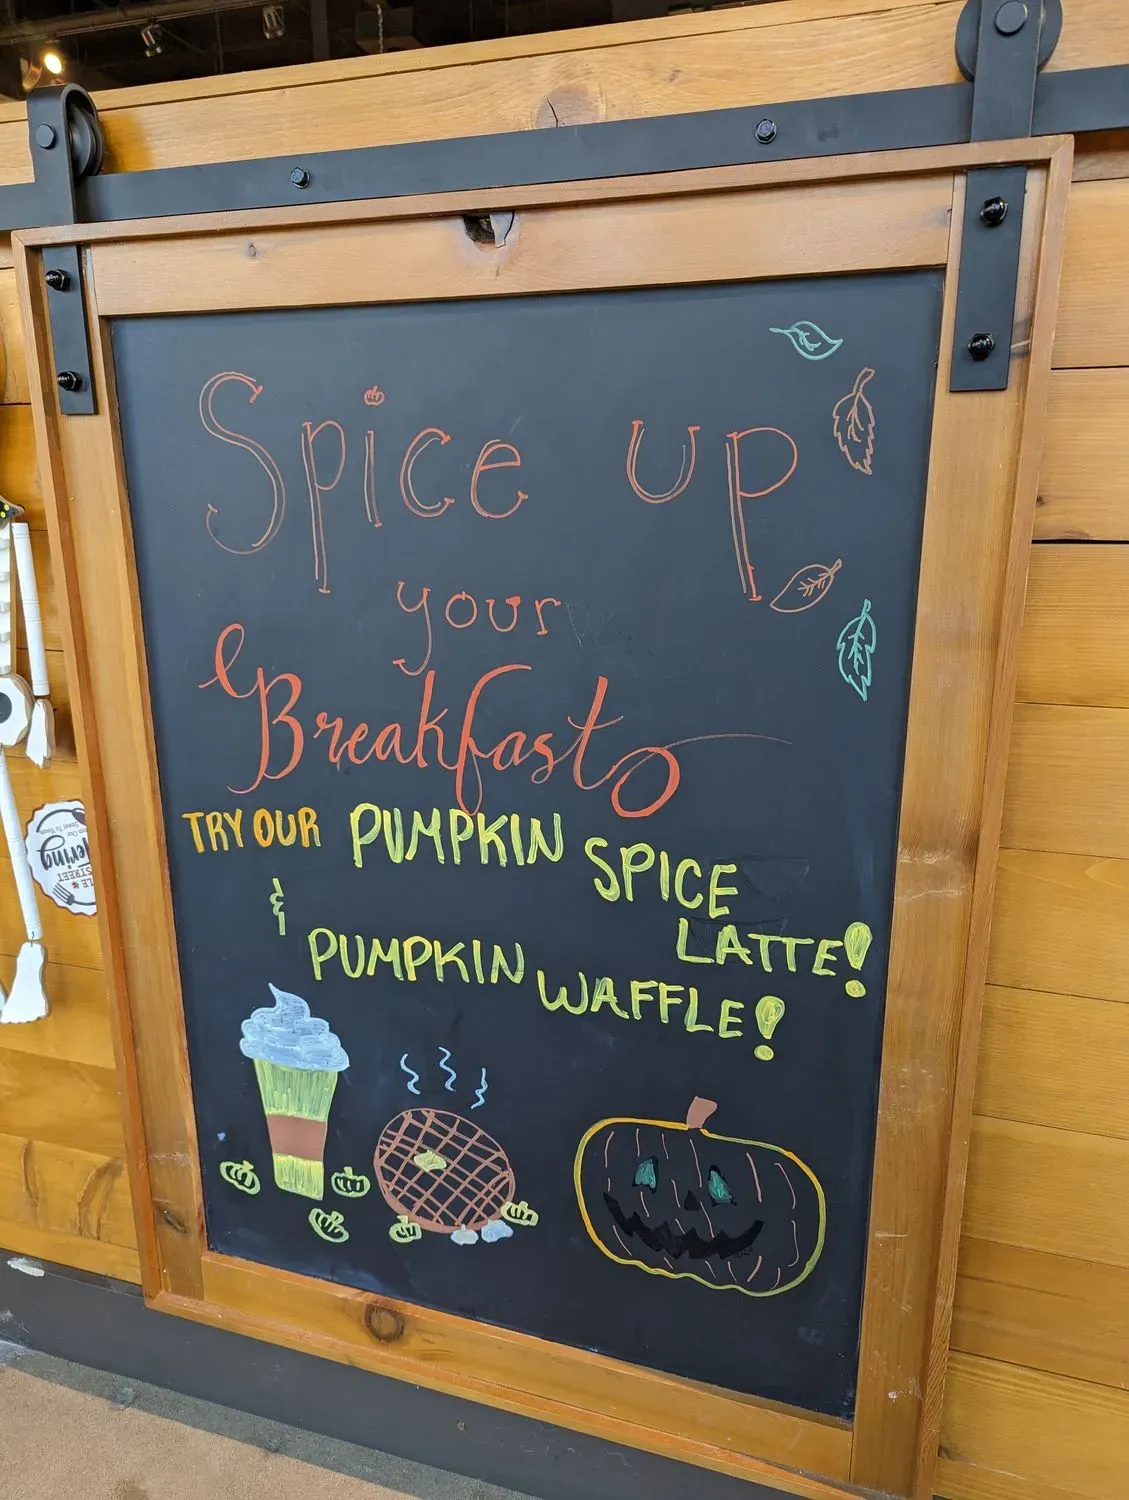 Spice up
your
Breakfast
TRY OUR PUMPKIN SPICE
LATTE!
&
PUMPKIN WAFFLE!
STREET